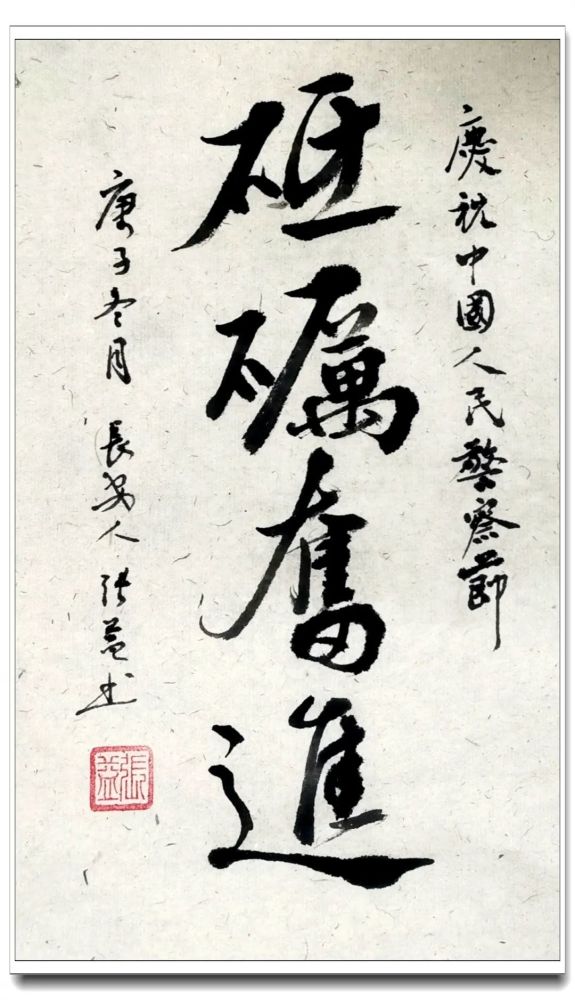 慶祝中國人民警察節
砥礪奮進
庚子冬月 長安人 張益書
張益